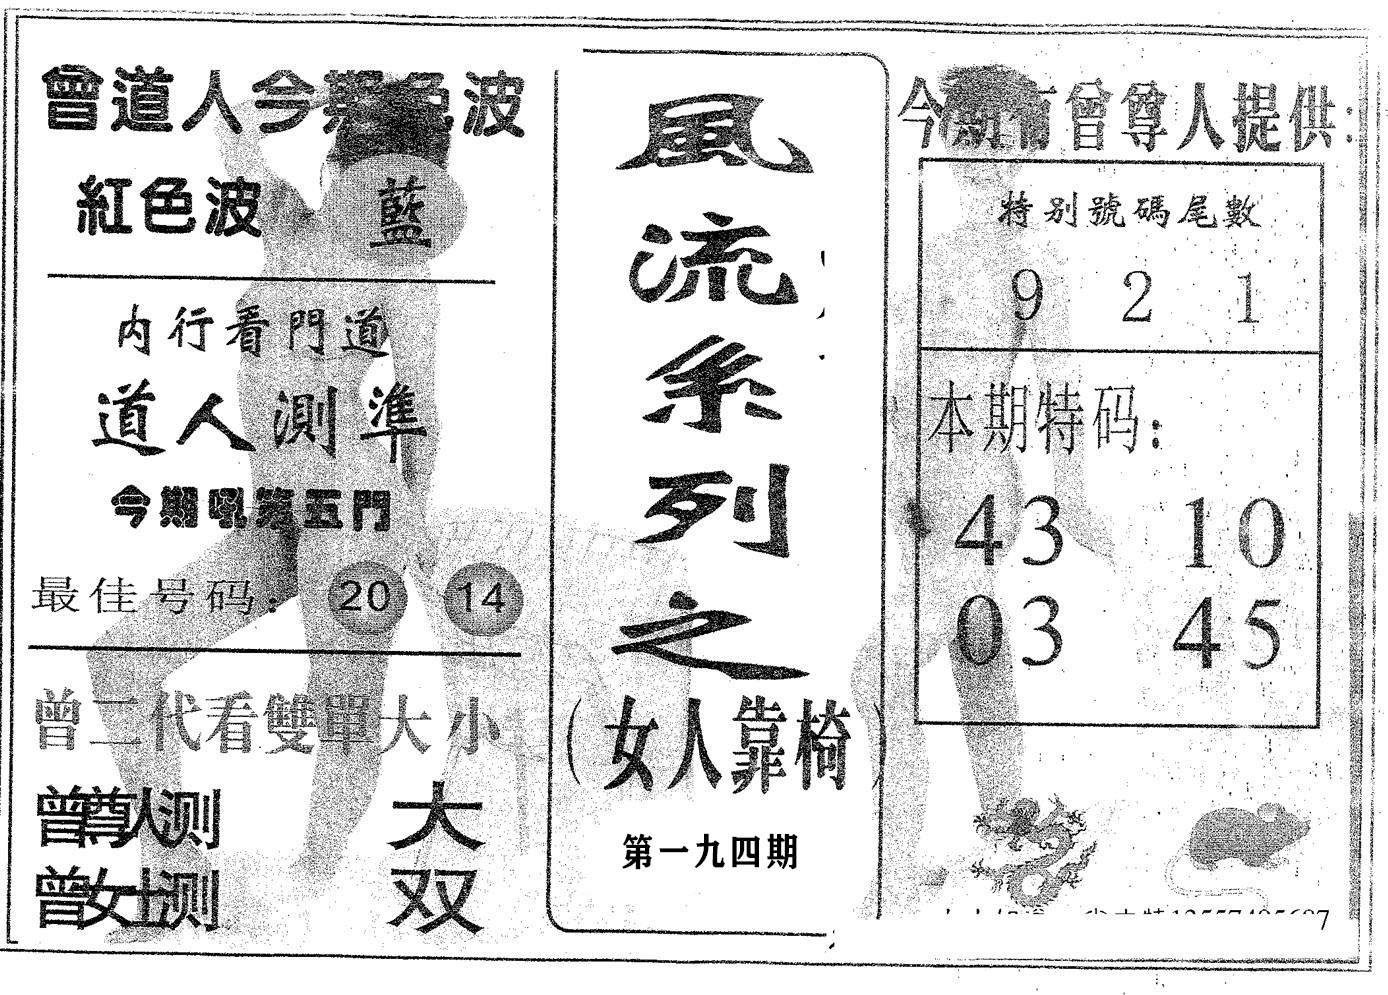 曾道人今期色波
紅色波 藍
内行看門道
道人測準
今期吼第五門
最佳号码： 20 14
曾二代看雙單大小
曾尊人测 大
曾女士测 双
風流系列之
（女人靠椅）
第一九四期
今期有曾尊人提供:
特别號碼尾數
9 2 1
本期特码:
43 10
03 45